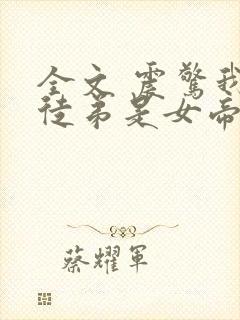 全文 震驚我
徒弟是女帝
蔡耀軍